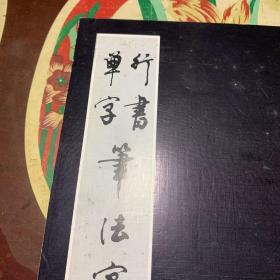 行書
單字
筆法